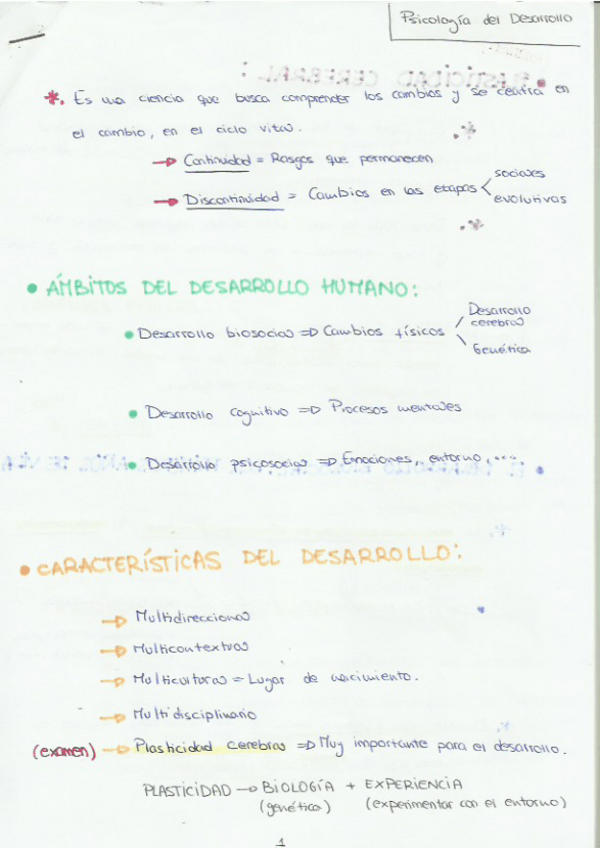 Psicología del Desarrollo
PLASTICIDAD CEREBRAL:
*. Es una ciencia que busca comprender los cambios y se centra en
el cambio, en el ciclo vital.
→ Continuidad = Rasgos que permanecen
→ Discontinuidad = Cambios en las etapas < sociales
evolutivas
• ÁMBITOS DEL DESARROLLO HUMANO:
• Desarrollo biosocial => Cambios físicos Desarrollo
cerebral
Genética
• Desarrollo cognitivo => Procesos mentales
• Desarrollo psicosocial => Emociones, entorno, ...
• CARACTERÍSTICAS DEL DESARROLLO:
→ Multidireccional
→ Multicontextual
→ Multicultural = Lugar de nacimiento.
→ Multidisciplinario
(examen) → Plasticidad cerebral => Muy importante para el desarrollo.
PLASTICIDAD → BIOLOGÍA + EXPERIENCIA
(genética) (experimentar con el entorno)
1